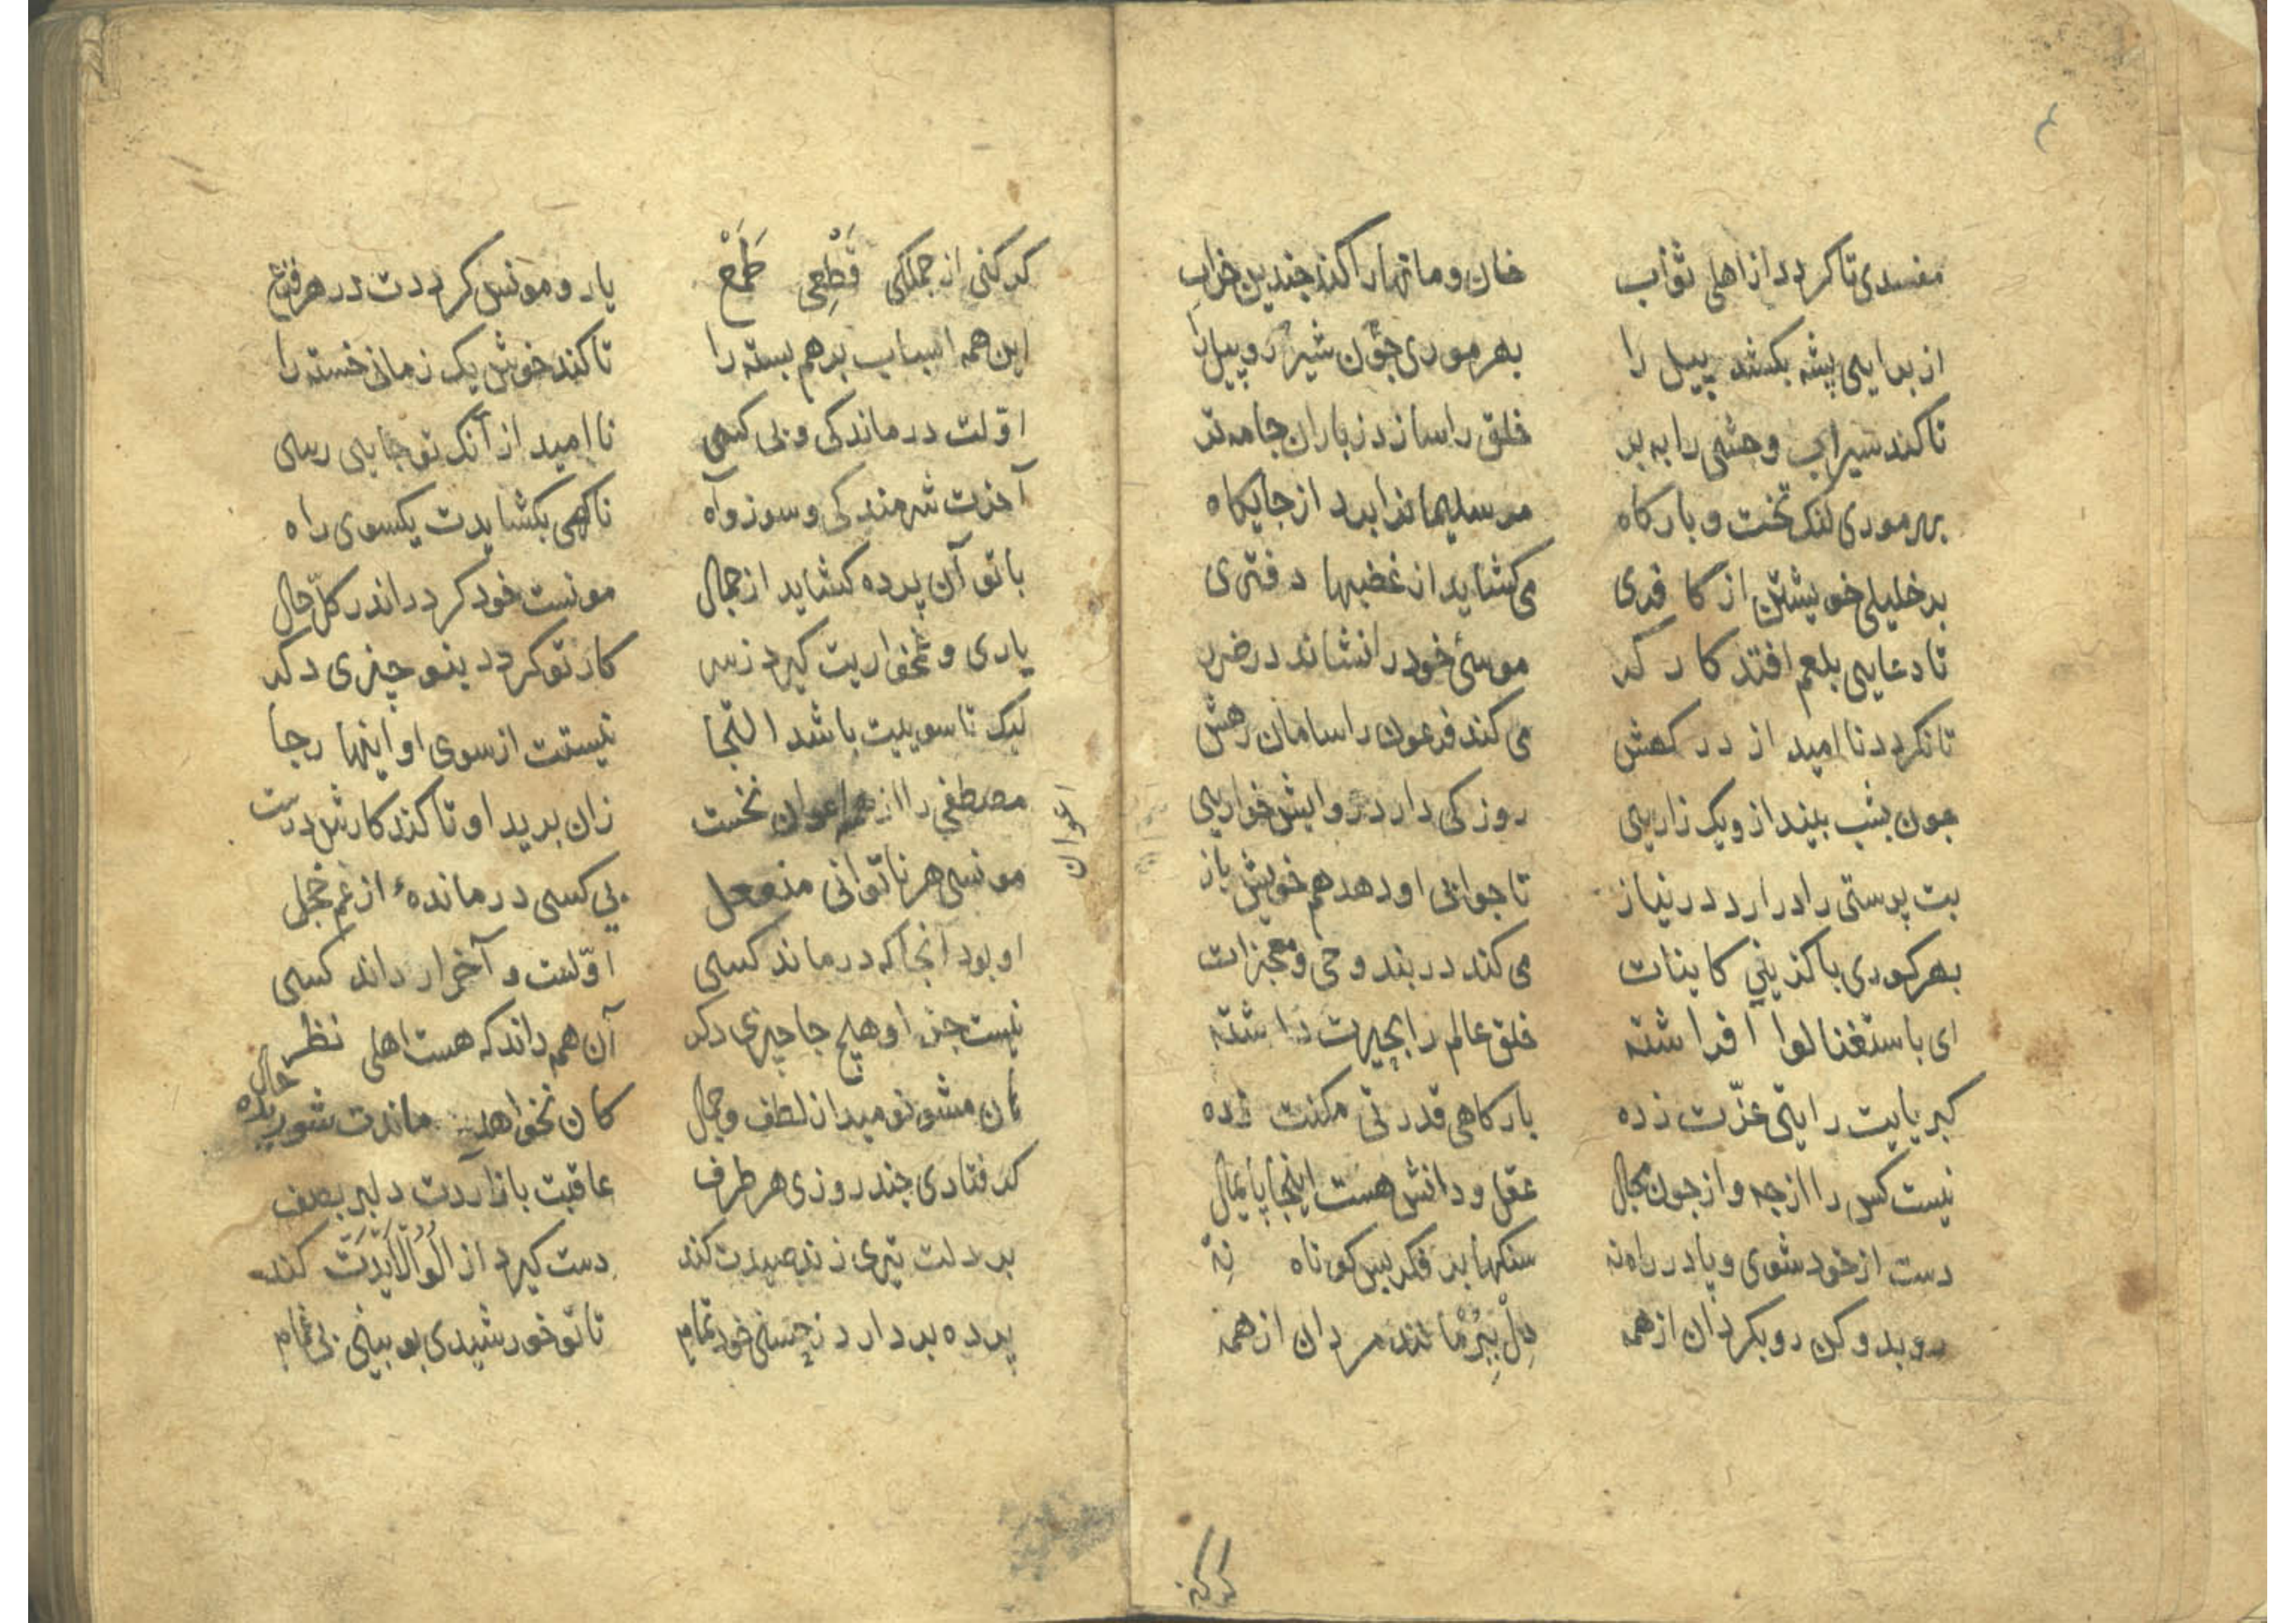 ۴
مفسدی تا کردد از اهلی ثواب خان و مانها را کند چندین خراب
از برایی پشه بکشد پیل را بهر موری چون شیر و پیل را
تا کند سیراب وحشی را به بر خلق را سازد ز باران جامه تر
بهر موری لنک تخت و بارکاه مر سلیمانرا برد از جایکاه
بر خلیلی خویشتن از کافری می کشاید از غضبها دفتری
تا دعایی بلعم افتد کارکر موسئ خود را نشاند در ضرر
تا نکردد ناامید از درکهش می کند فرعون را سامان رهش
جون بشب بیند ازو یک زاریی روزکی دارد روایش خواریی
بت پرستی را درارد در نیاز تا جوابی او دهد هم خویش باز
بهر کوری با کزینی کاینات می کند در بند وحی و معجزات
ای باستغنا لوا افراشته خلق عالم را بحیرت داشته
کبریایت رایتی عزّت زده بارکاهی قدرتی مکنت زده
نیست کس را از چه و از جون مجال عقل و دانش هست اینجا پایمال
دست از خود شوی و پا در راه نه سنکها بر فکر بس کوتاه نه
رو بدو کن رو بکردان از همه دل ببر مانند مردان از همه
کر کنی
کر کنی از جملکی قَطْعِی طَمَعْ یار و مونس کرددت در هر فزع
این همه اسباب برهم بسته را تا کند خوش یک زمانی خسته را
اوّلت درماندکی و بی کسی ناامید از آنک تو جایی رسی
آخرت شرمندکی و سوز و آه ناکهی بکشایدت یکسوی راه
با تو آن پرده کشاید از جمال مونست خود کردد اندر کلّ حال
یاری و غمخواریت کیرد ز سر کار تو کردد بنو چیزی دکر
لیک تا سوییت باشد التجا نیستت از سوی او اینها رجا
مصطفی را از همه اعوان نخست زان برید او تا کند کارش درست
اعوان
مونسی هر ناتوانی منفعل بی کسی درماندهٔ از غم خجل
او بود آنجا که درماند کسی اوّلست و آخر ار داند کسی
نیست جز او هیچ جا چیزی دکر آن هم داند که هست اهلی نظر
هان مشو نومید از لطف و جمال کان نخواهد ماندت شوریده حال
کر فتادی چند روزی هر طرف عاقبت باز اردت دلبر بصف
بر دلت تیری زند صیدت کند دست کیرد از الوالایدت کند
پرده بردارد ز حسنی خود تمام تا تو خورشیدی بو بینی بی غمام